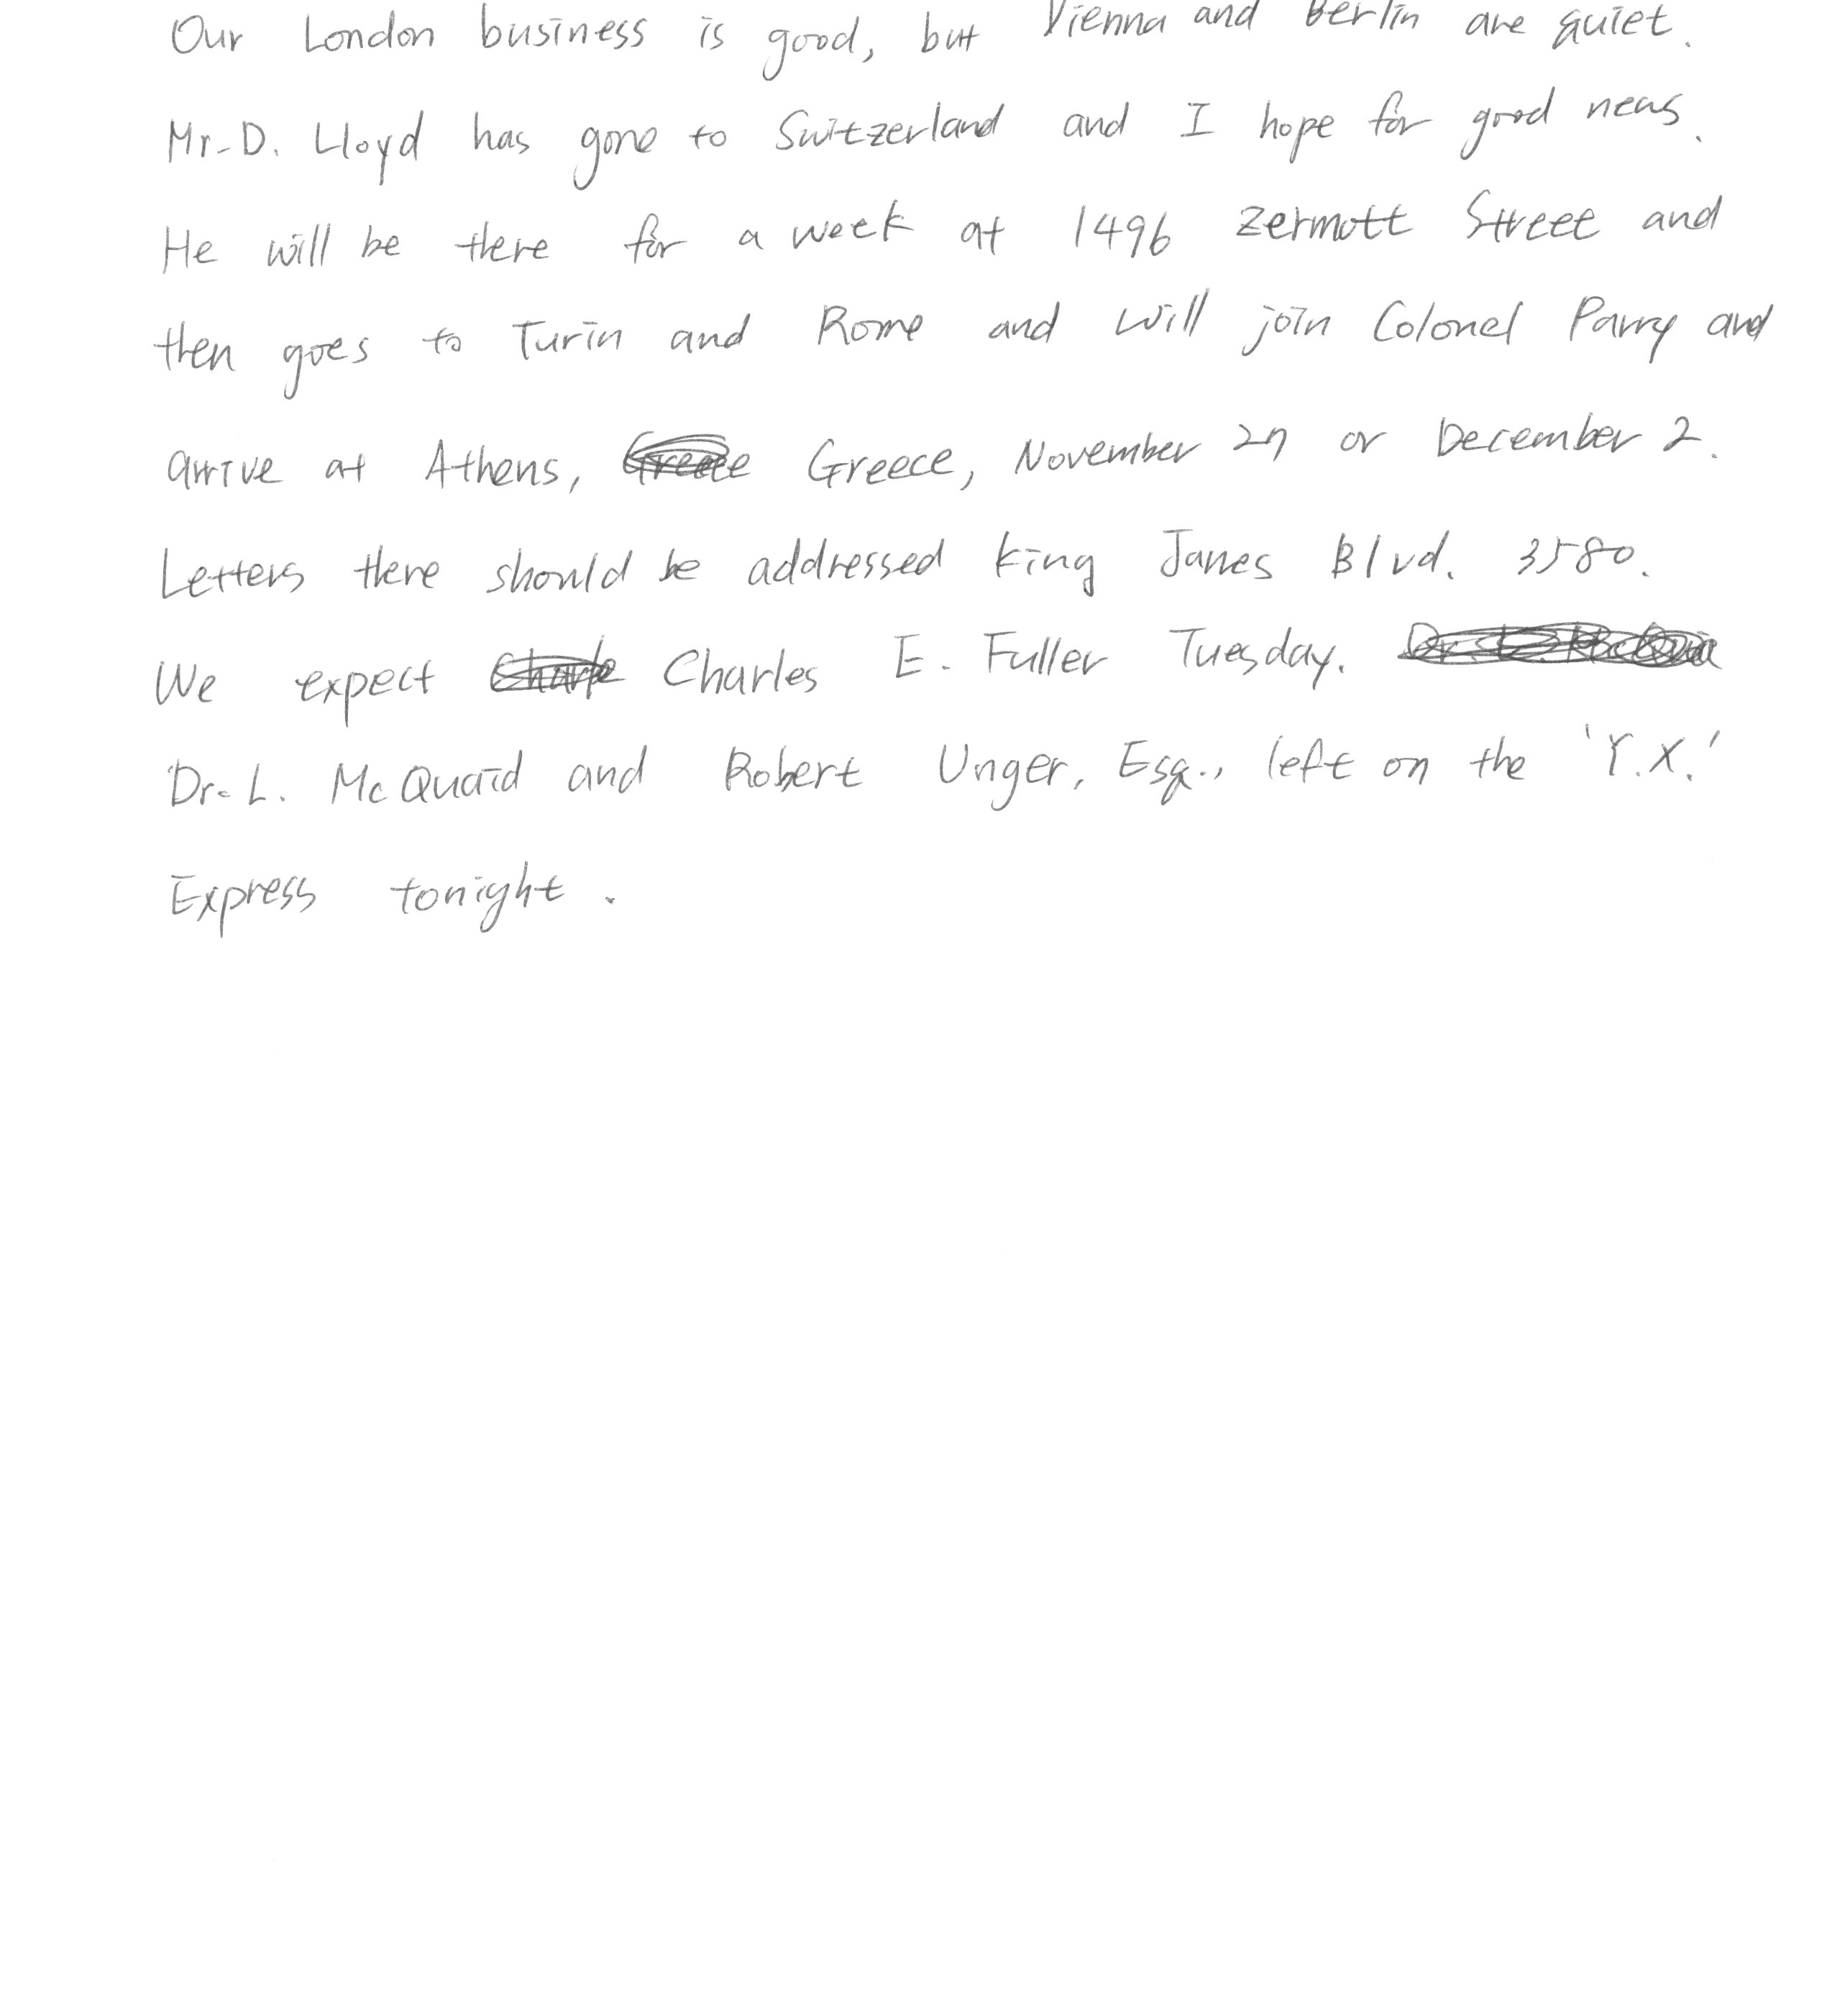 Our London business is good, but Vienna and Berlin are quiet.
Mr. D. Lloyd has gone to Switzerland and I hope for good news.
He will be there for a week at 1496 Zermott Street and
then goes to Turin and Rome and will join Colonel Parry and
arrive at Athens, Greece, November 27 or December 2.
Letters there should be addressed King James Blvd. 3580.
We expect Charles E. Fuller Tuesday.
Dr. L. McQuaid and Robert Unger, Esq., left on the 'Y.X.'
Express tonight.